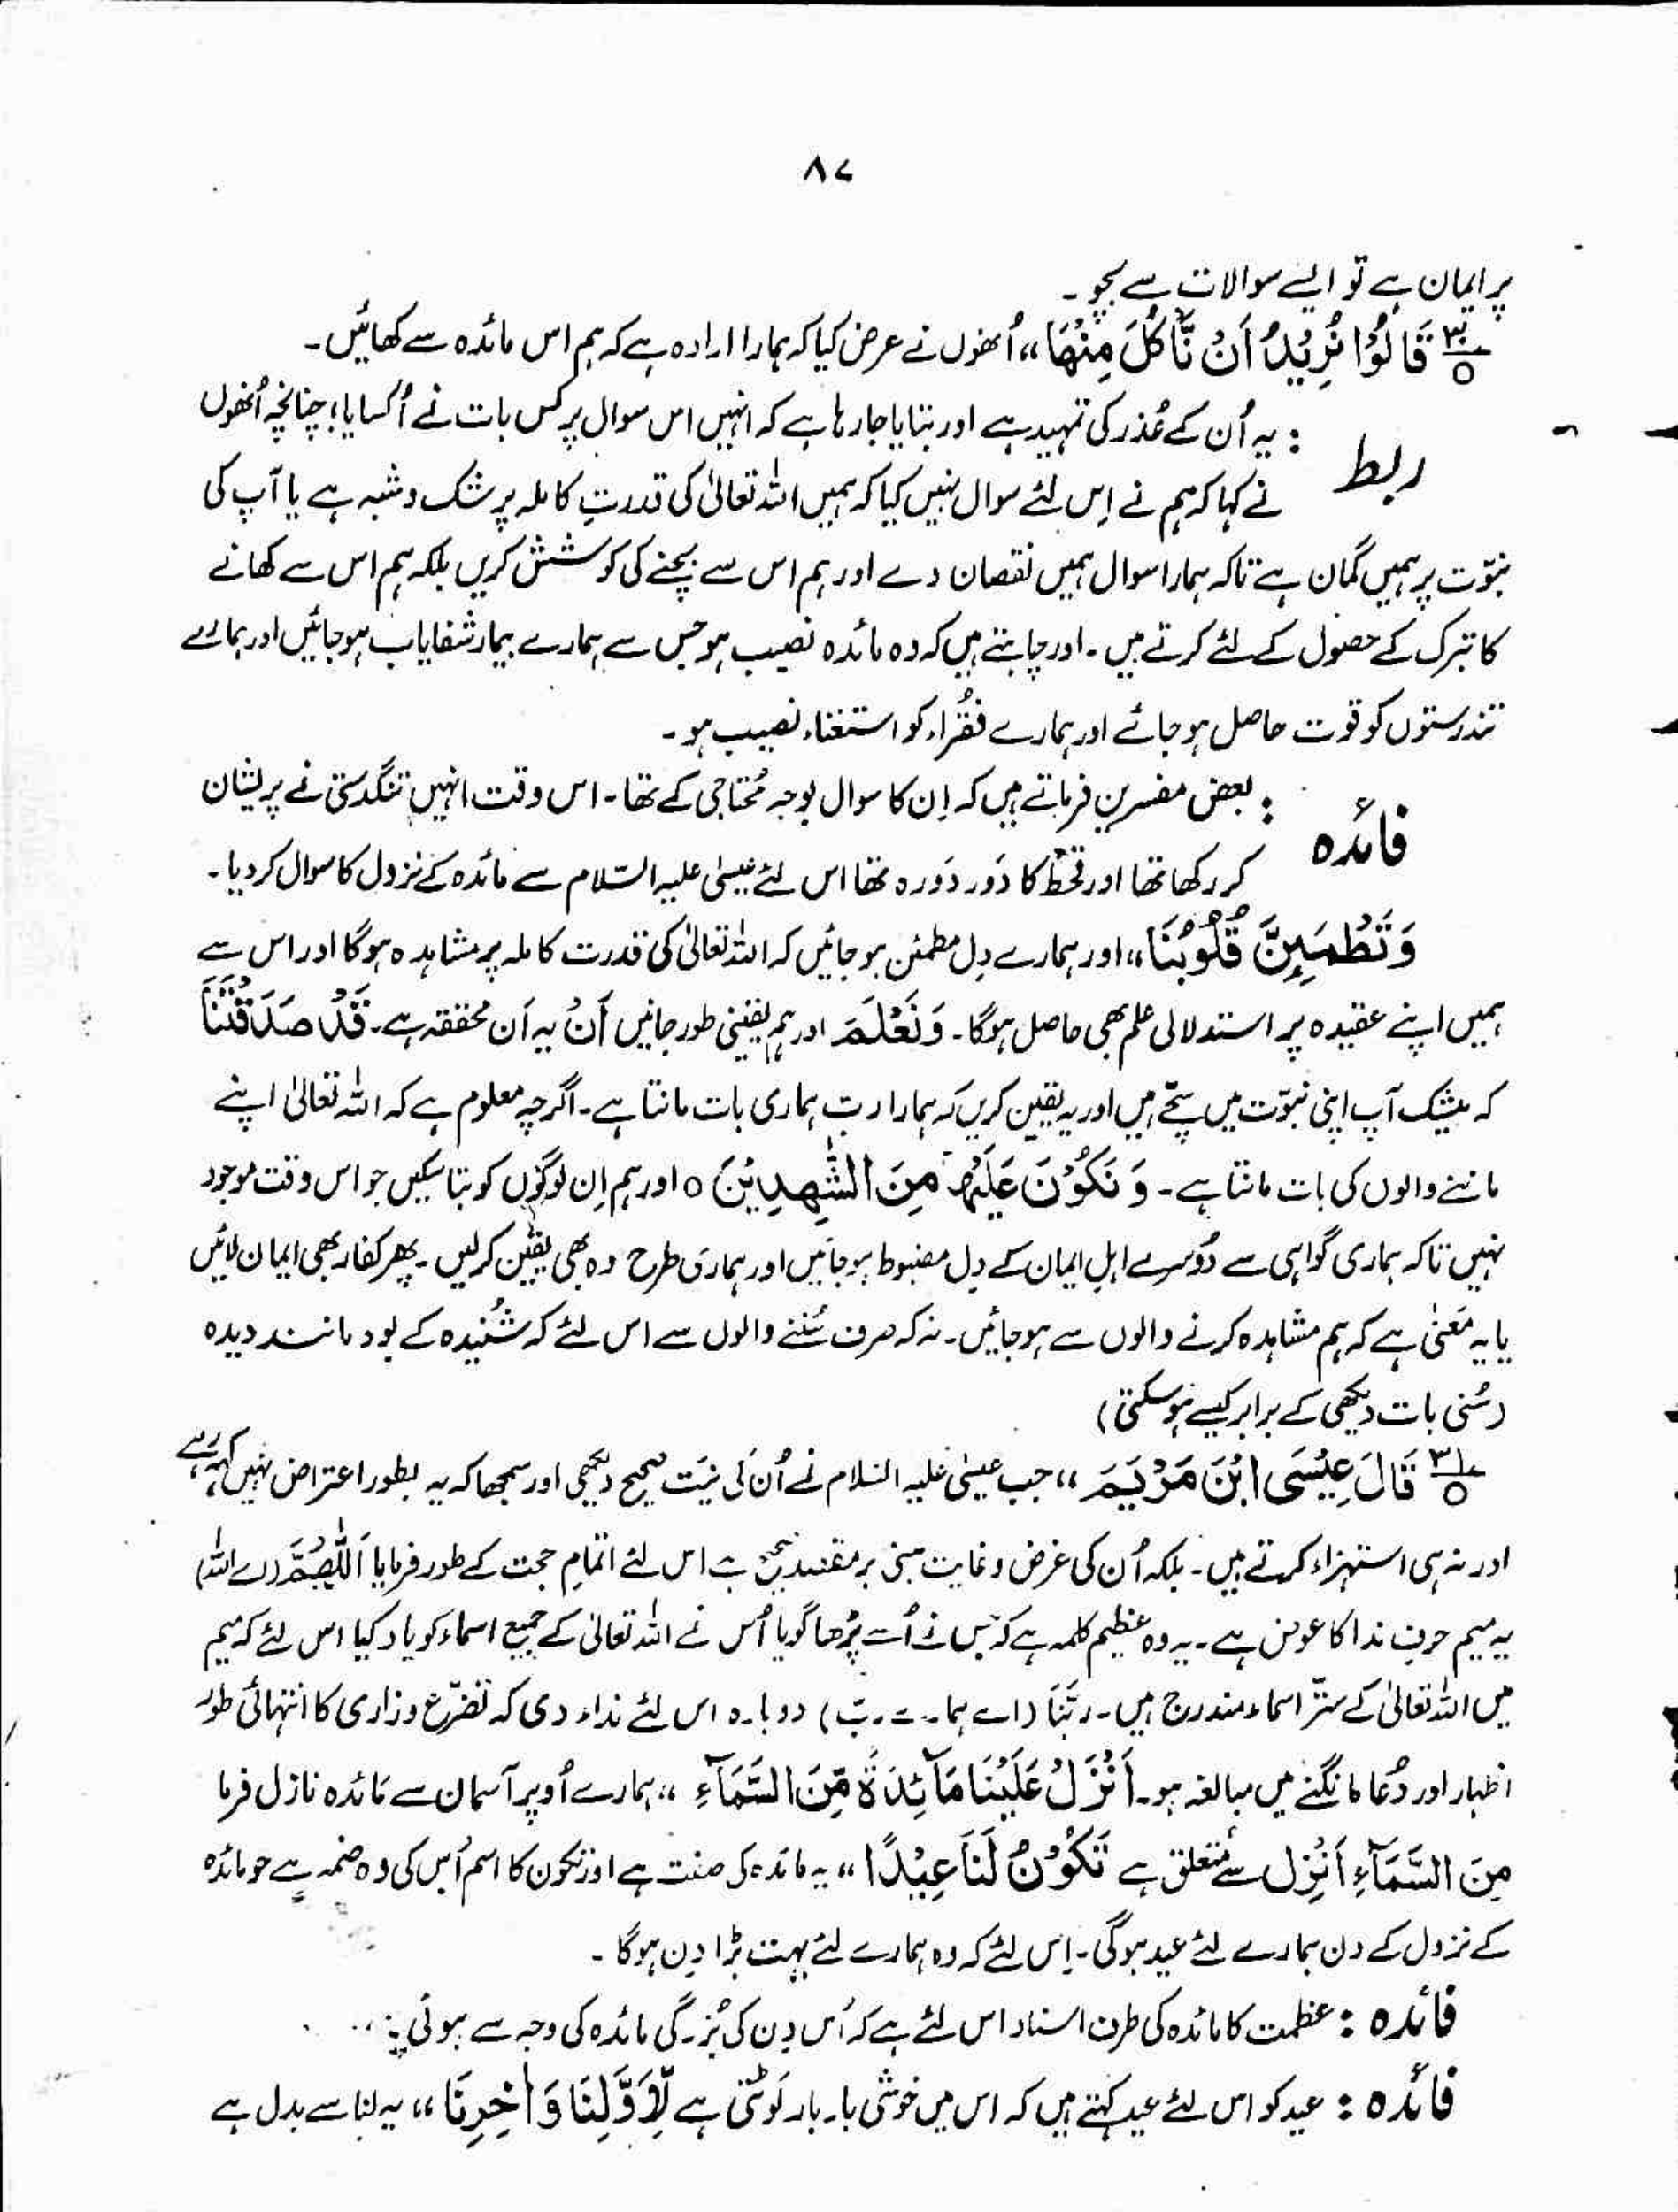 ۸۷
پر ایمان ہے تو ایسے سوالات سے بچو۔
۳۰ قَالُوْا نُرِیْدُ اَنْ نَّاْکُلَ مِنْھَا،، اُنھوں نے عرض کیا کہ ہمارا ارادہ ہے کہ ہم اس مائدہ سے کھائیں۔
ربط : یہ اُن کے عُذر کی تمہید ہے اور بتایا جا رہا ہے کہ انہیں اس سوال پر کس بات نے اُکسایا؛ چنانچہ اُنھوں
نے کہا کہ ہم نے اِس لئے سوال نہیں کیا کہ ہمیں اللہ تعالیٰ کی قدرتِ کاملہ پر شک و شبہ ہے یا آپ کی
نبوّت پر ہمیں گمان ہے تاکہ ہمارا سوال ہمیں نقصان دے اور ہم اس سے بچنے کی کوشش کریں بلکہ ہم اس سے کھانے
کا تبرک کے حصول کے لئے کرتے ہیں۔ اور چاہتے ہیں کہ وہ مائدہ نصیب ہو جس سے ہمارے بیمار شفایاب ہو جائیں اور ہمارے
تندرستوں کو قوت حاصل ہو جائے اور ہمارے فقُراء کو استغناء نصیب ہو۔
فائدہ : بعض مفسرین فرماتے ہیں کہ اِن کا سوال بوجہ مُحتاجی کے تھا۔ اس وقت انہیں تنگدستی نے پریشان
کر رکھا تھا اور قحط کا دَور دَورہ تھا اس لئے عیسیٰ علیہ السّلام سے مائدہ کے نزول کا سوال کر دیا۔
وَتَطْمَئِنَّ قُلُوْبُنَا،، اور ہمارے دِل مطمئن ہو جائیں کہ اللہ تعالیٰ کی قدرت کاملہ پر مشاہدہ ہوگا اور اس سے
ہمیں اپنے عقیدہ پر استدلالی علم بھی حاصل ہوگا۔ وَنَعْلَمَ اور ہم یقینی طور جانیں اَنْ یہ اَن محققہ ہے۔ قَدْ صَدَقْتَنَا
کہ بیشک آپ اپنی نبوّت میں سچّے ہیں اور یہ یقین کریں کہ ہمارا ربّ ہماری بات مانتا ہے۔ اگرچہ معلوم ہے کہ اللہ تعالیٰ اپنے
ماننے والوں کی بات مانتا ہے۔ وَنَکُوْنَ عَلَیْھَا مِنَ الشّٰھِدِیْنَ o اور ہم اِن لوگوں کو بتا سکیں جو اس وقت موجود
نہیں تاکہ ہماری گواہی سے دُوسرے اہلِ ایمان کے دِل مضبوط ہو جائیں اور ہماری طرح وہ بھی یقین کرلیں۔ پھر کفار بھی ایمان لائیں
یا یہ مَعنیٰ ہے کہ ہم مشاہدہ کرنے والوں سے ہو جائیں۔ نہ کہ صرف سُننے والوں سے اس لئے کہ شُنیدہ کے بود مانند دیدہ
(سُنی بات دیکھی کے برابر کیسے ہو سکتی)
۳۱ قَالَ عِیْسَی ابْنُ مَرْیَمَ ،، جب عیسیٰ علیہ السلام نے اُن کی نیّت صحیح دیکھی اور سمجھا کہ یہ بطور اعتراض نہیں کہہ رہے
اور نہ ہی استہزاء کرتے ہیں۔ بلکہ اُن کی غرض و غایت مبنی بر مقصد ہے اس لئے اتمامِ حجت کے طور فرمایا اَللّٰھُمَّ (اے اللہ)
یہ میم حرفِ ندا کا عوض ہے۔ یہ وہ عظیم کلمہ ہے کہ جس نے اُسے پڑھا گویا اُس نے اللہ تعالیٰ کے جمیع اسماء کو یاد کیا اس لئے کہ میم
میں اللہ تعالیٰ کے ستّر اسماء مندرج ہیں۔ ربَّنَا (اے ہمارے ربّ) دوبارہ اس لئے نداء دی کہ تضرّع وزاری کا انتہائی طور
اظہار اور دُعا مانگنے میں مبالغہ ہو۔ اَنْزِلْ عَلَیْنَا مَآئِدَۃً مِّنَ السَّمَآءِ ،، ہمارے اُوپر آسمان سے مائدہ نازل فرما
مِنَ السَّمَآءِ اَنْزِل سے متعلق ہے تَکُوْنُ لَنَا عِیْدًا ،، یہ مائدہ کی صفت ہے اور تکون کا اسم اُس کی وہ ضمیر ہے جو مائدہ
کے نزول کے دن ہمارے لئے عید ہوگی۔ اِس لئے کہ وہ ہمارے لئے بہت بڑا دِن ہوگا۔
فائدہ : عظمت کا مائدہ کی طرف اسناد اس لئے ہے کہ اُس دِن کی بُزرگی مائدہ کی وجہ سے ہوئی۔
فائدہ : عید کو اس لئے عید کہتے ہیں کہ اس میں خوشی بار بار لَوٹتی ہے لِّاَوَّلِنَا وَاٰخِرِنَا ،، یہ لنا سے بدل ہے